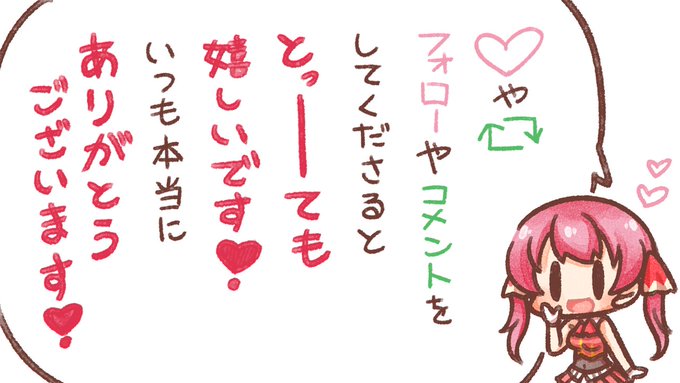 ♡や🔁
フォローやコメントを
してくださると
とっーーても
嬉しいです♥
いつも本当に
ありがとう
ございます♥